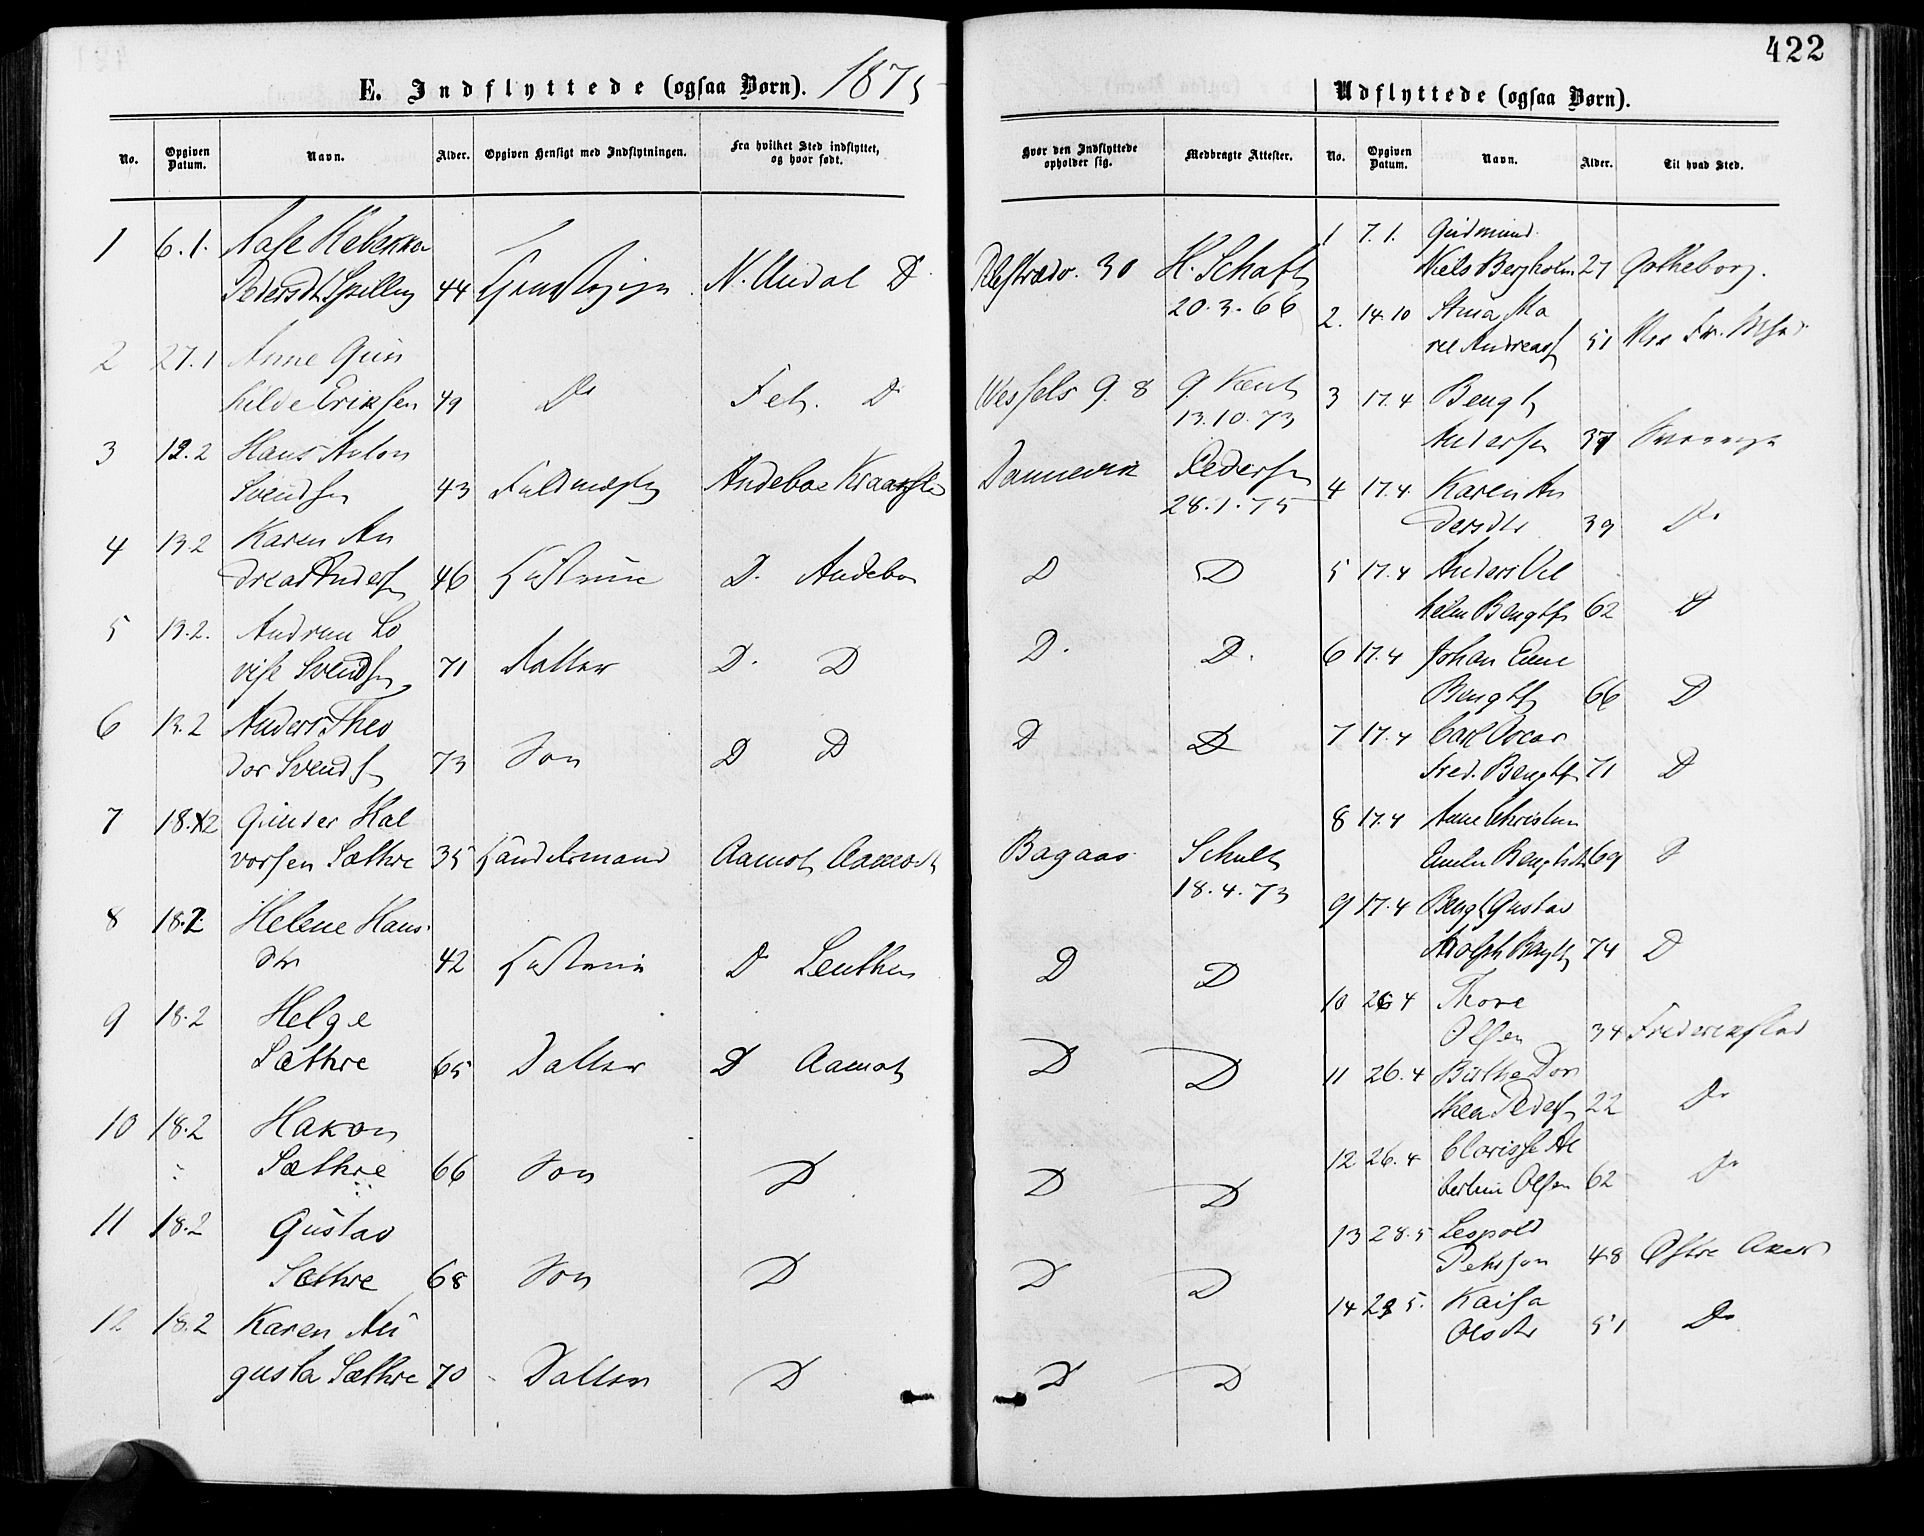 422
E. Indflyttede (ogsaa Børn). 1875
No. Opgiven Datum. Navn. Alder. Opgiven Hensigt med Indflytningen. Fra hvilket Sted indflyttet, og hvor født. Hvor den Indflyttede opholder sig. Medbragte Attester.
1 6.1. Aase Rebekka
Pedersdt 44 N. Undal D. 30 H. Schaft
20.3.66
2 27.1 Anne Gun
hilde Eriksen 49 Do Fet. Do Wessels g. 8 g. Kent
13.10.73
3 12.2 Hans Anton
Svendsen 43 Andebo Dannevik Pedersen
28.1.75
4 13.2 Karen An
drea Anders 46 Hustrue D. Andebo D D
5 13.2. Andrine Lo
vise Svends 71 Datter D. D D. D.
6 13.2 Anders Theo
dor Svends 73 Søn D D D D
7 18.2 Gunder Hal
vorsen Sæthre 35 Haandverksmand Aamot Aamodt Bagaas Schult
18.4.73
8 18.2 Helene Hans
dtr 42 Hustrue D Leuthen D D
9 18.2 Helge
Sæthre 65 Datter D Aamot D D
10 18.2 Hakon
Sæthre 66 Søn D D D
11 18.2 Gustav
Sæthre 68 Søn D D D
12 18.2 Karen Au
gusta Sæthre 70 Datter D D D
Udflyttede (ogsaa Børn).
No. Opgiven Datum. Navn. Alder. Til hvad Sted.
1 7.1. Gudmund
Niels Bergholm 27 Gøtheborg.
2. 14.10 Stina Ma
rie Andreas 51
3 17.4 Bengt
Andersen 37 Sverrige
4 17.4. Karen An
dersdtr 39 Do
5 17.4 Anders Vil
helm Bengts 62 D
6 17.4 Johan Emil
Bengts 66 D
7 17.4 Carl Oscar
Fred. Bengts 71 D
8 17.4 Anne Christine
Emilie Bengtsdtr 69 D
9 17.4 Bengt Gustav
Adolph Bengts 74 D
10 26.4 Thore
Olsen 34 Frederikstad
11 26.4 Birthe Doro
thea Peders 22 Do
12 26.4 Clarisse Al
bertine Olsen 62 Do
13 28.5 Leopold
Pehrson 48 Østre Aker
14 28.5. Kaisa
Olsdtr 51 Do